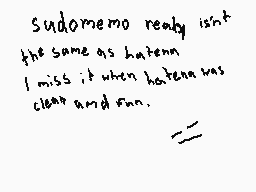 sudomemo realy isn't
the same as hatena
I miss it when hatena was
clean and fun.